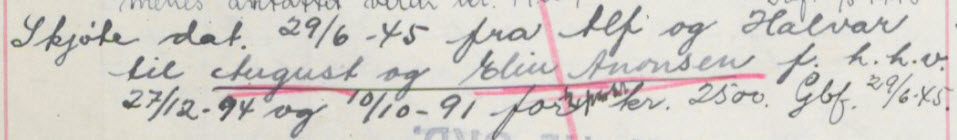 Skjøte dat. 29/6-45 fra Alf og Halvar
til August og Elin Anonsen f. h.h.v.
27/12-94 og 10/10-91 for kr. 2500. Gbf. 29/6-45.